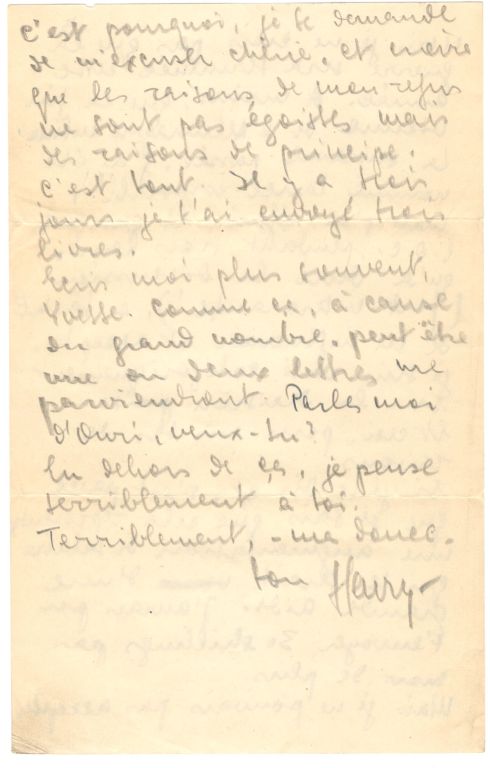 c'est pourquoi, je te demande
de m'excuser chérie, et croire
que les raisons de mon refus
ne sont pas égoistes mais
des raisons de principe.
c'est tout Il y a trois
jours je t'ai envoyé trois
livres.
Ecris moi plus souvent,
Yvette. Comme ça, à cause
du grand nombre, peut être
une ou deux lettres me
parviendront. Parles moi
d'Ouri, veux-tu?
En dehors de ça, je pense
terriblement à toi.
Terriblement, - ma douce.
ton Harry